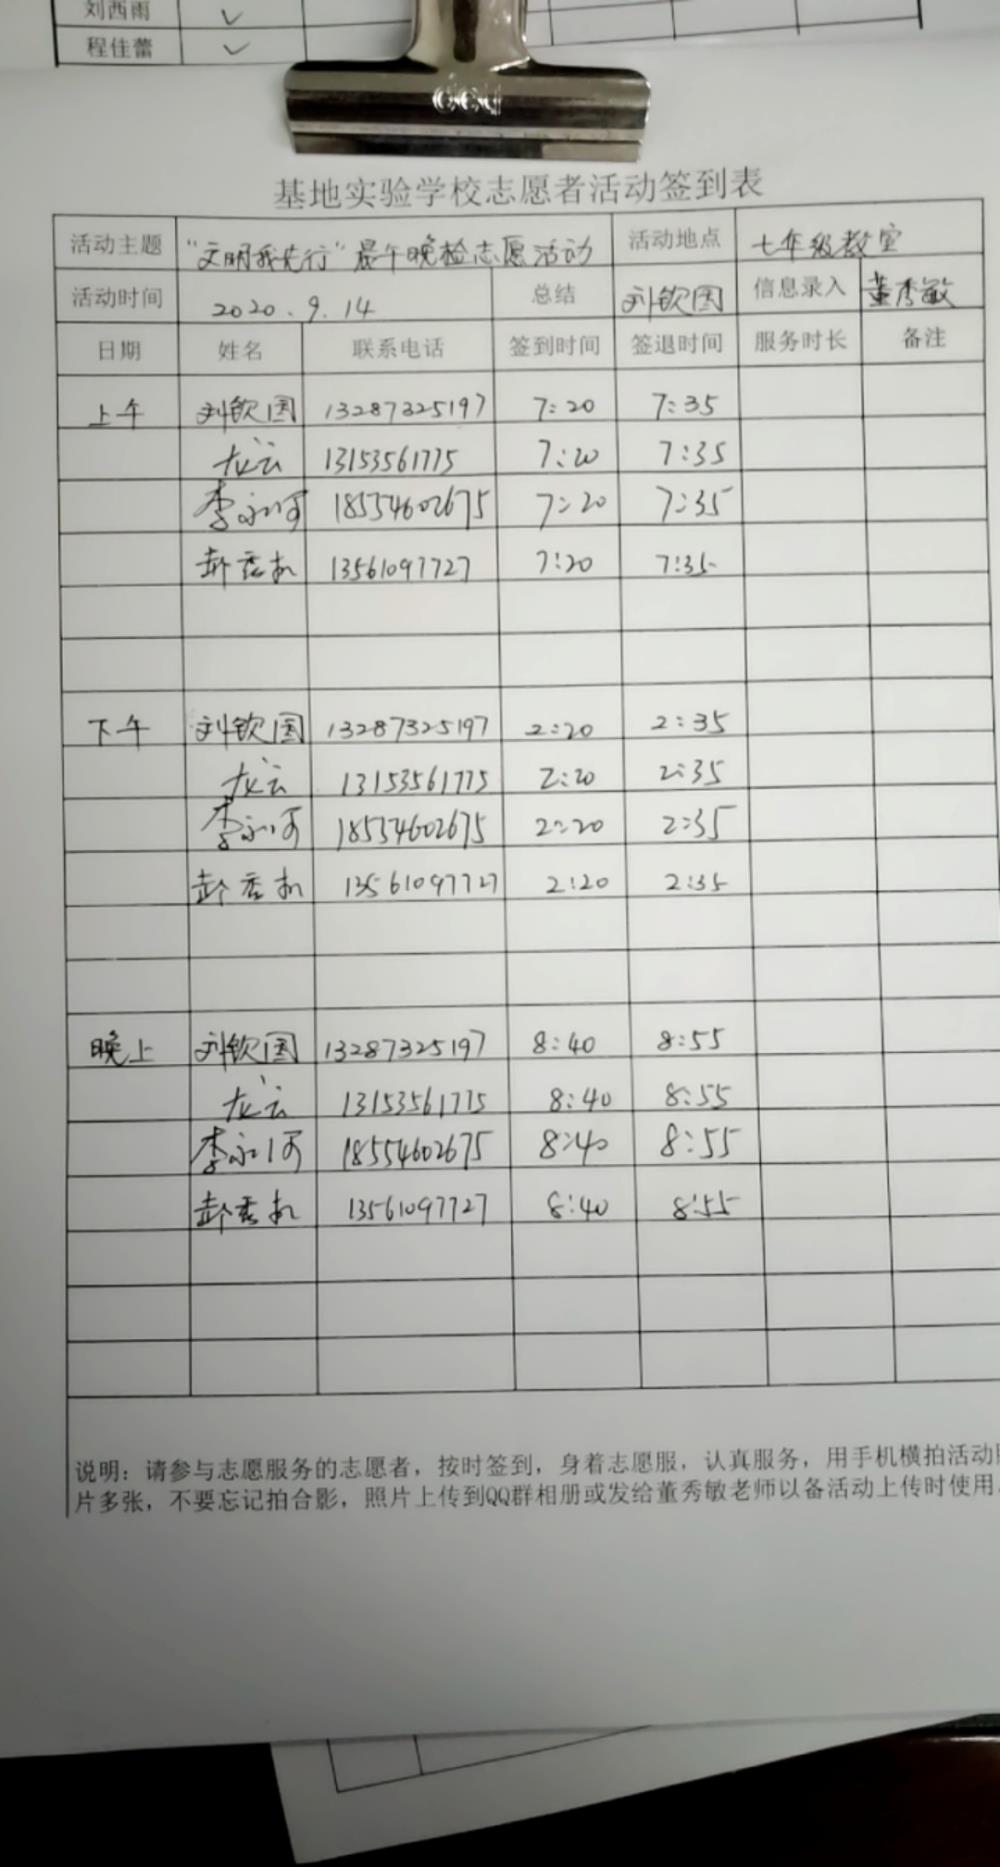 刘西雨 ✓
程佳蕾 ✓
基地实验学校志愿者活动签到表
活动主题 "文明我先行"晨午晚检志愿活动 活动地点 七年级教室
活动时间 2020.9.14 总结 刘钦国 信息录入 董秀敏
日期 姓名 联系电话 签到时间 签退时间 服务时长 备注
上午 刘钦国 13287325197 7:20 7:35
龙云 13153561775 7:20 7:35
李永河 18554602675 7:20 7:35
13561097727 7:20 7:35
下午 刘钦国 13287325197 2:20 2:35
龙云 13153561775 2:20 2:35
李永河 18554602675 2:20 2:35
13561097727 2:20 2:35
晚上 刘钦国 13287325197 8:40 8:55
龙云 13153561775 8:40 8:55
李永河 18554602675 8:40 8:55
13561097727 8:40 8:55
说明：请参与志愿服务的志愿者，按时签到，身着志愿服，认真服务，用手机横拍活动
片多张，不要忘记拍合影，照片上传到QQ群相册或发给董秀敏老师以备活动上传时使用